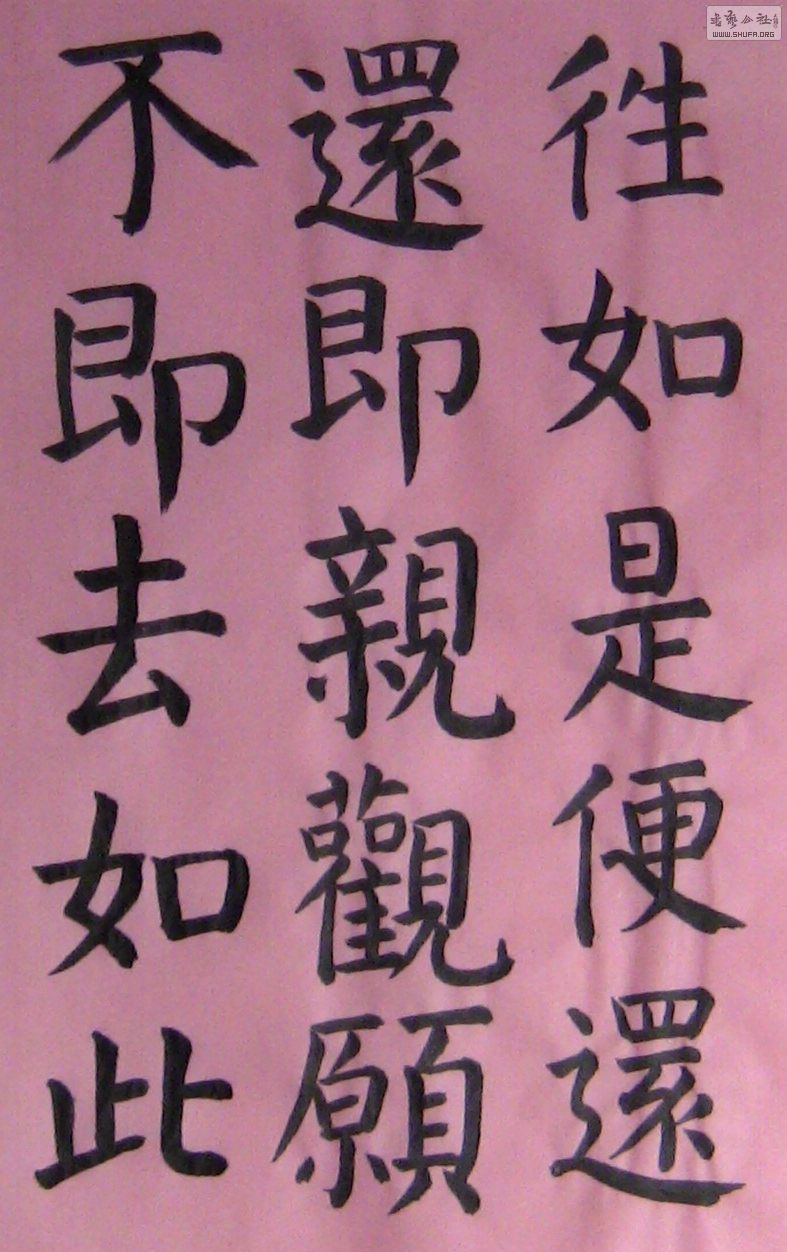 徃如是便還
還即親觀願
不即去如此
書藝公社
WWW.SHUFA.ORG